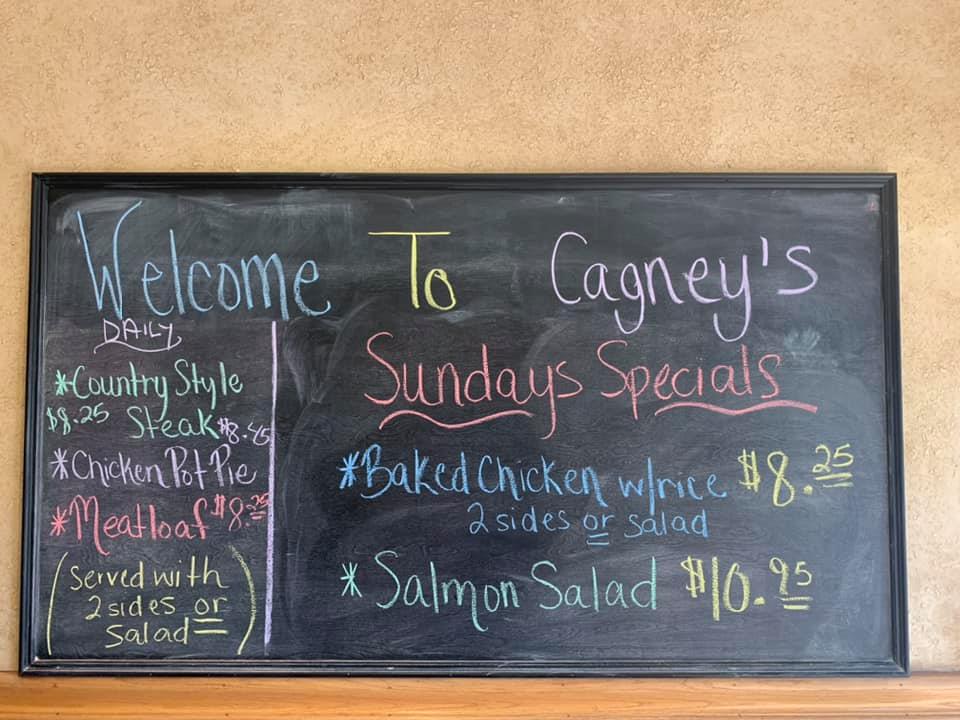 Welcome To Cagney's
DAILY
*Country Style
$8.25 Steak
$8.45
*Chicken Pot Pie
*Meatloaf $8.25
(Served with
2 sides or
Salad)
Sundays Specials
*Baked Chicken w/rice $8.25
2 sides or salad
* Salmon Salad $10.95